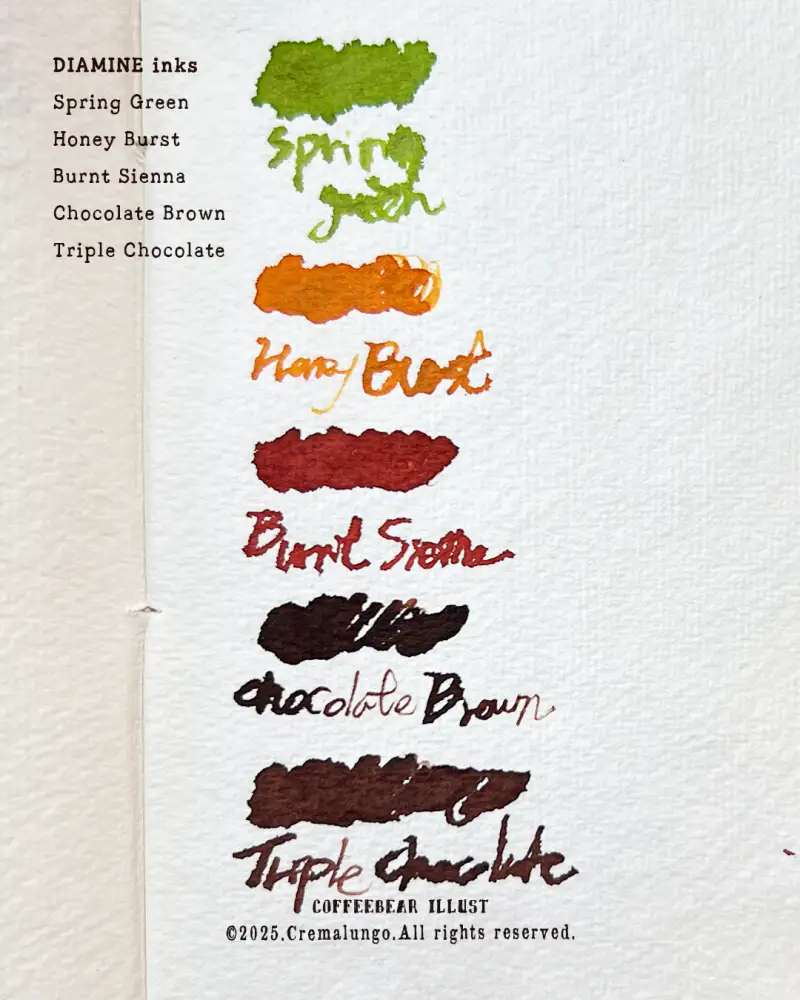 DIAMINE inks
Spring Green
Honey Burst
Burnt Sienna
Chocolate Brown
Triple Chocolate
Spring
green
Honey Burst
Burnt Sienna
chocolate Brown
Triple chocolate
COFFEEBEAR ILLUST
©2025.Cremalungo.All rights reserved.